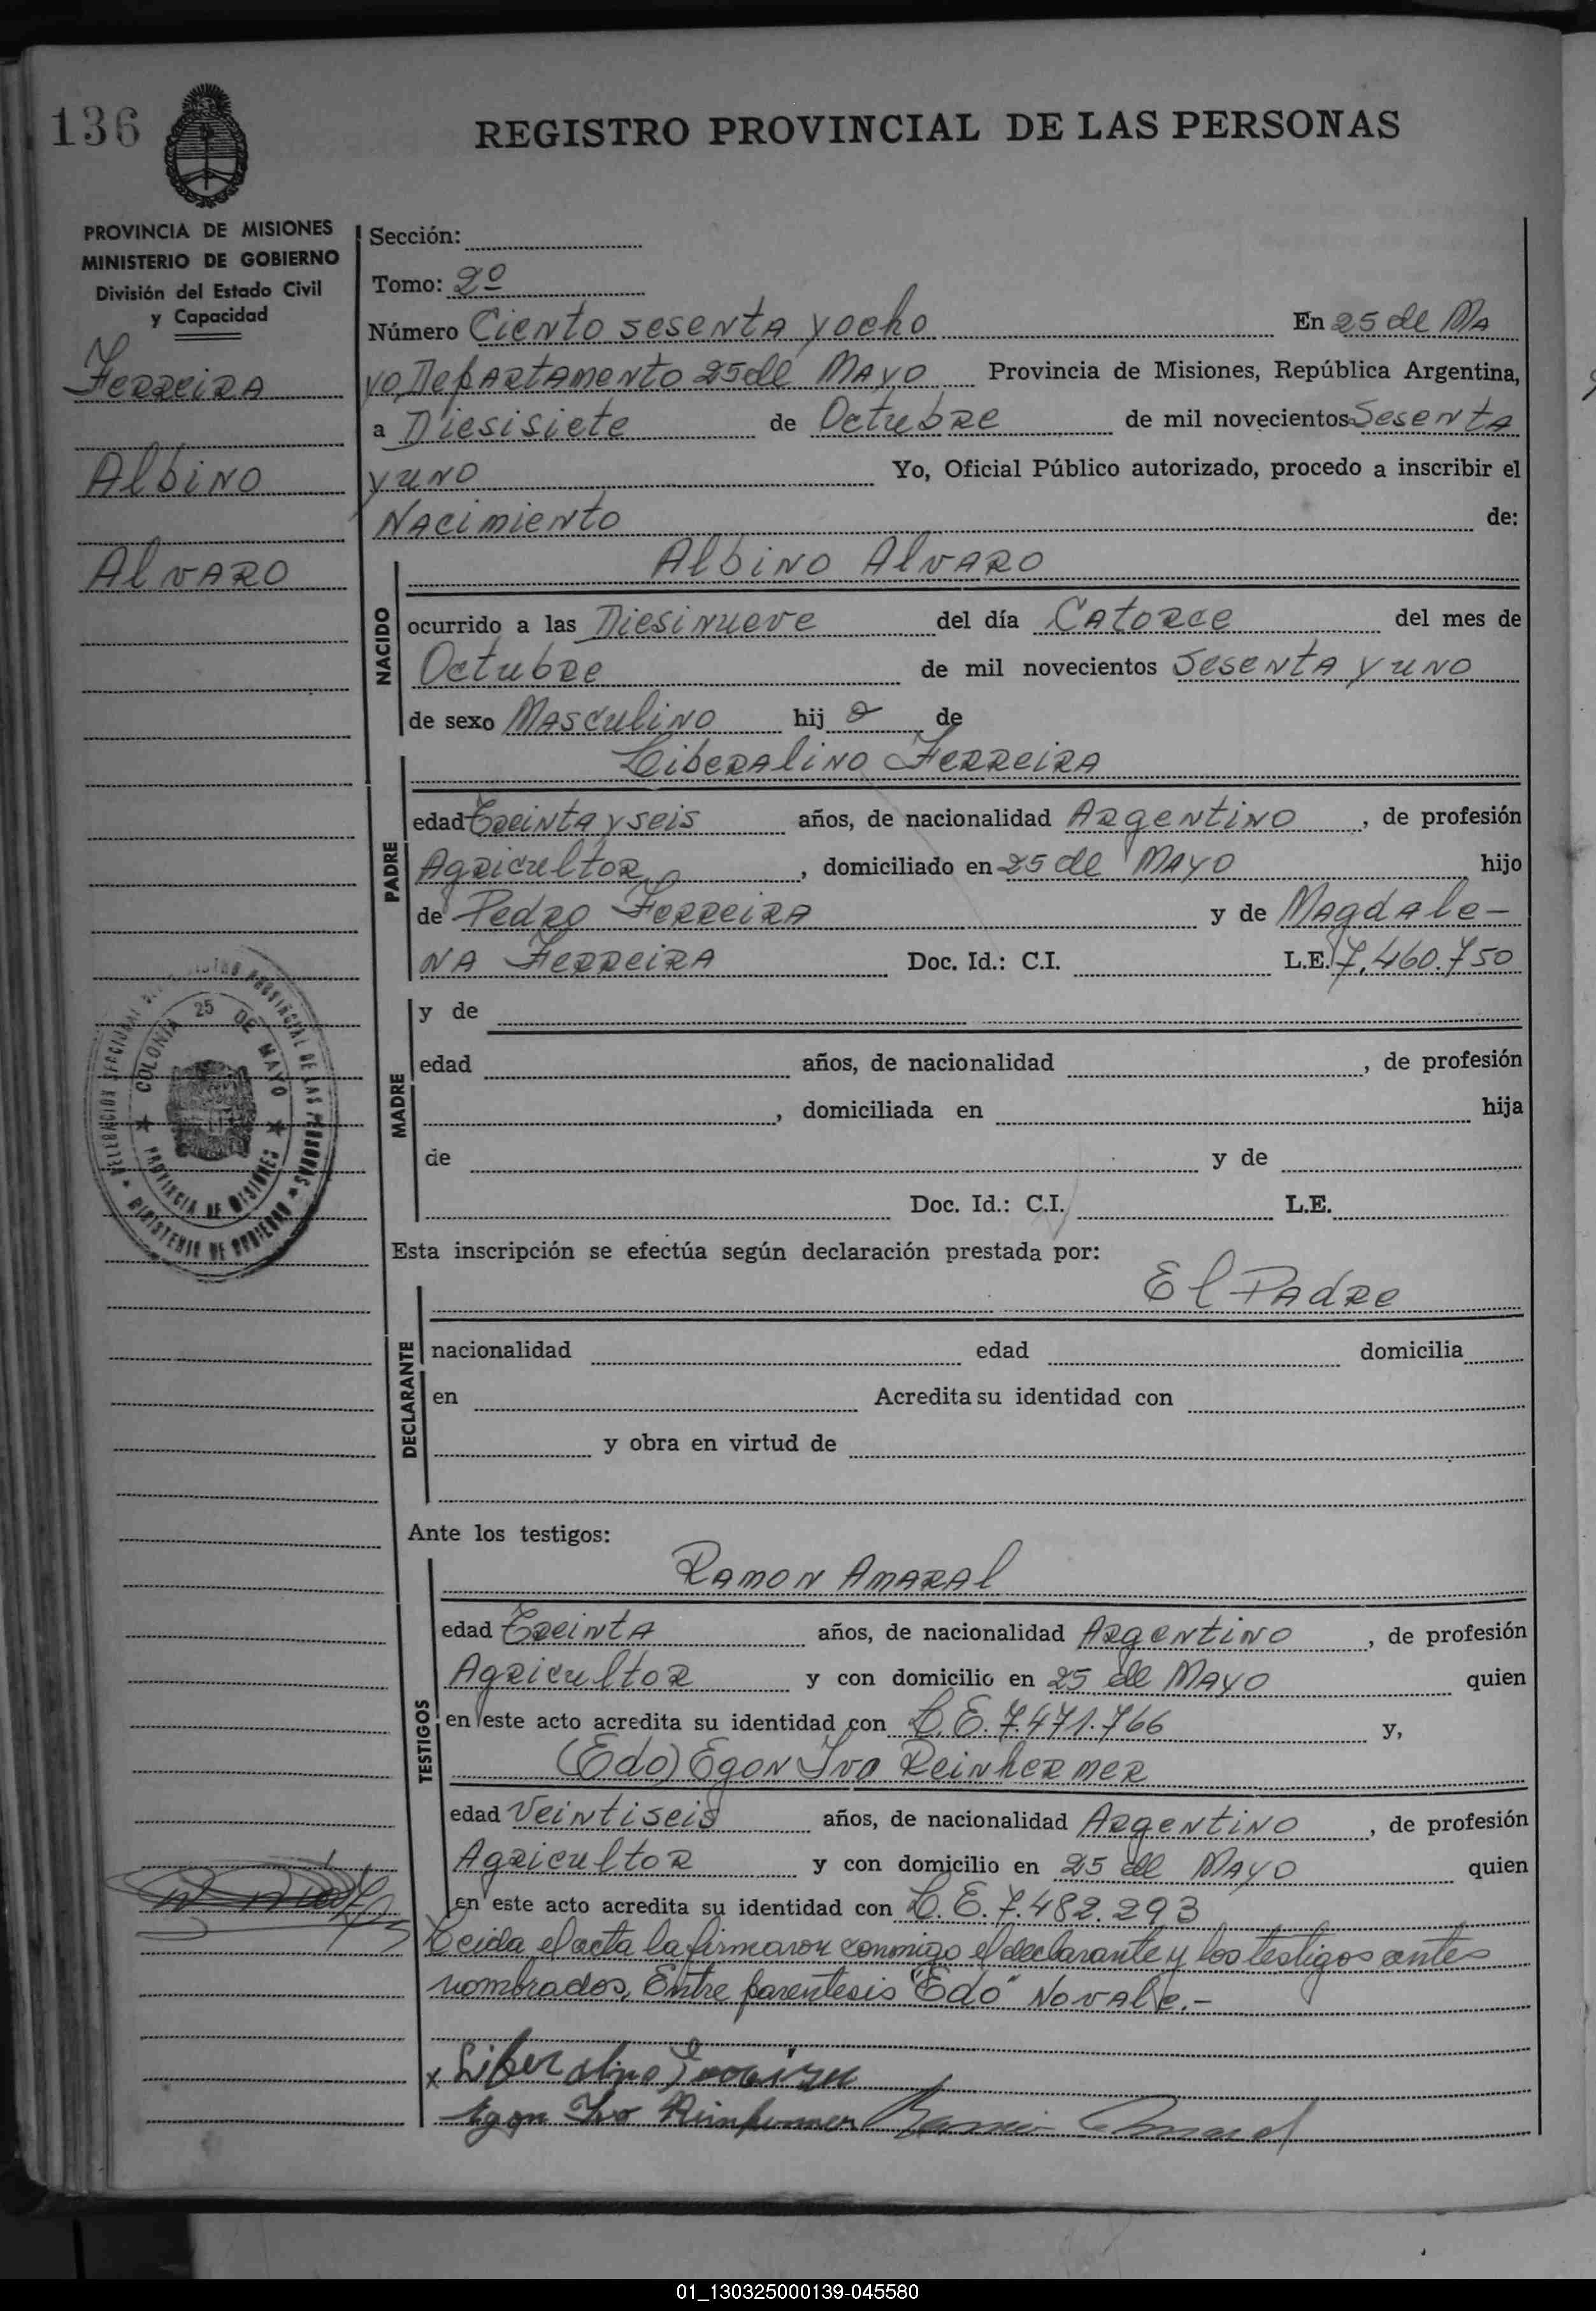 136
REGISTRO PROVINCIAL DE LAS PERSONAS
PROVINCIA DE MISIONES
MINISTERIO DE GOBIERNO
División del Estado Civil
y Capacidad
FERREIRA
Albino
AlvARO
Sección:
Tomo: 2º
Número Ciento sesenta y ocho En 25 de MA
yo, Departamento 25 de MAYO Provincia de Misiones, República Argentina,
a Diesisiete de Octubre de mil novecientos Sesenta
y uno Yo, Oficial Público autorizado, procedo a inscribir el
Nacimiento de:
NACIDO
Albino Alvaro
ocurrido a las Diesinueve del día Catorce del mes de
Octubre de mil novecientos Sesenta y uno
de sexo Masculino hij o de
PADRE
Liberalino Ferreira
edad Treinta y seis años, de nacionalidad Argentino, de profesión
Agricultor, domiciliado en 25 de Mayo hijo
de Pedro Ferreira y de Magdale-
na Ferreira Doc. Id.: C.I. L.E. 7.460.750
MADRE
y de
edad años, de nacionalidad , de profesión
, domiciliada en hija
de y de
Doc. Id.: C.I. L.E.
COLONIA 25 DE MAYO
PROVINCIA DE MISIONES
MINISTERIO DE GOBIERNO
Esta inscripción se efectúa según declaración prestada por:
El Padre
DECLARANTE
nacionalidad edad domicilia
en Acredita su identidad con
y obra en virtud de
Ante los testigos:
TESTIGOS
Ramon Amaral
edad Treinta años, de nacionalidad Argentino, de profesión
Agricultor y con domicilio en 25 de Mayo quien
en este acto acredita su identidad con L.E. 7.471.766 y,
(Edo) Egon Ivo Reinhermer
edad Veintiseis años, de nacionalidad Argentino, de profesión
Agricultor y con domicilio en 25 de Mayo quien
en este acto acredita su identidad con L.E. 7.482.293
Leida el acta la firmaron conmigo el declarante y los testigos antes
nombrados. Entre parentesis "Edo" No vale.-
x Liberalino
Egon Ivo
01_130325000139-045580